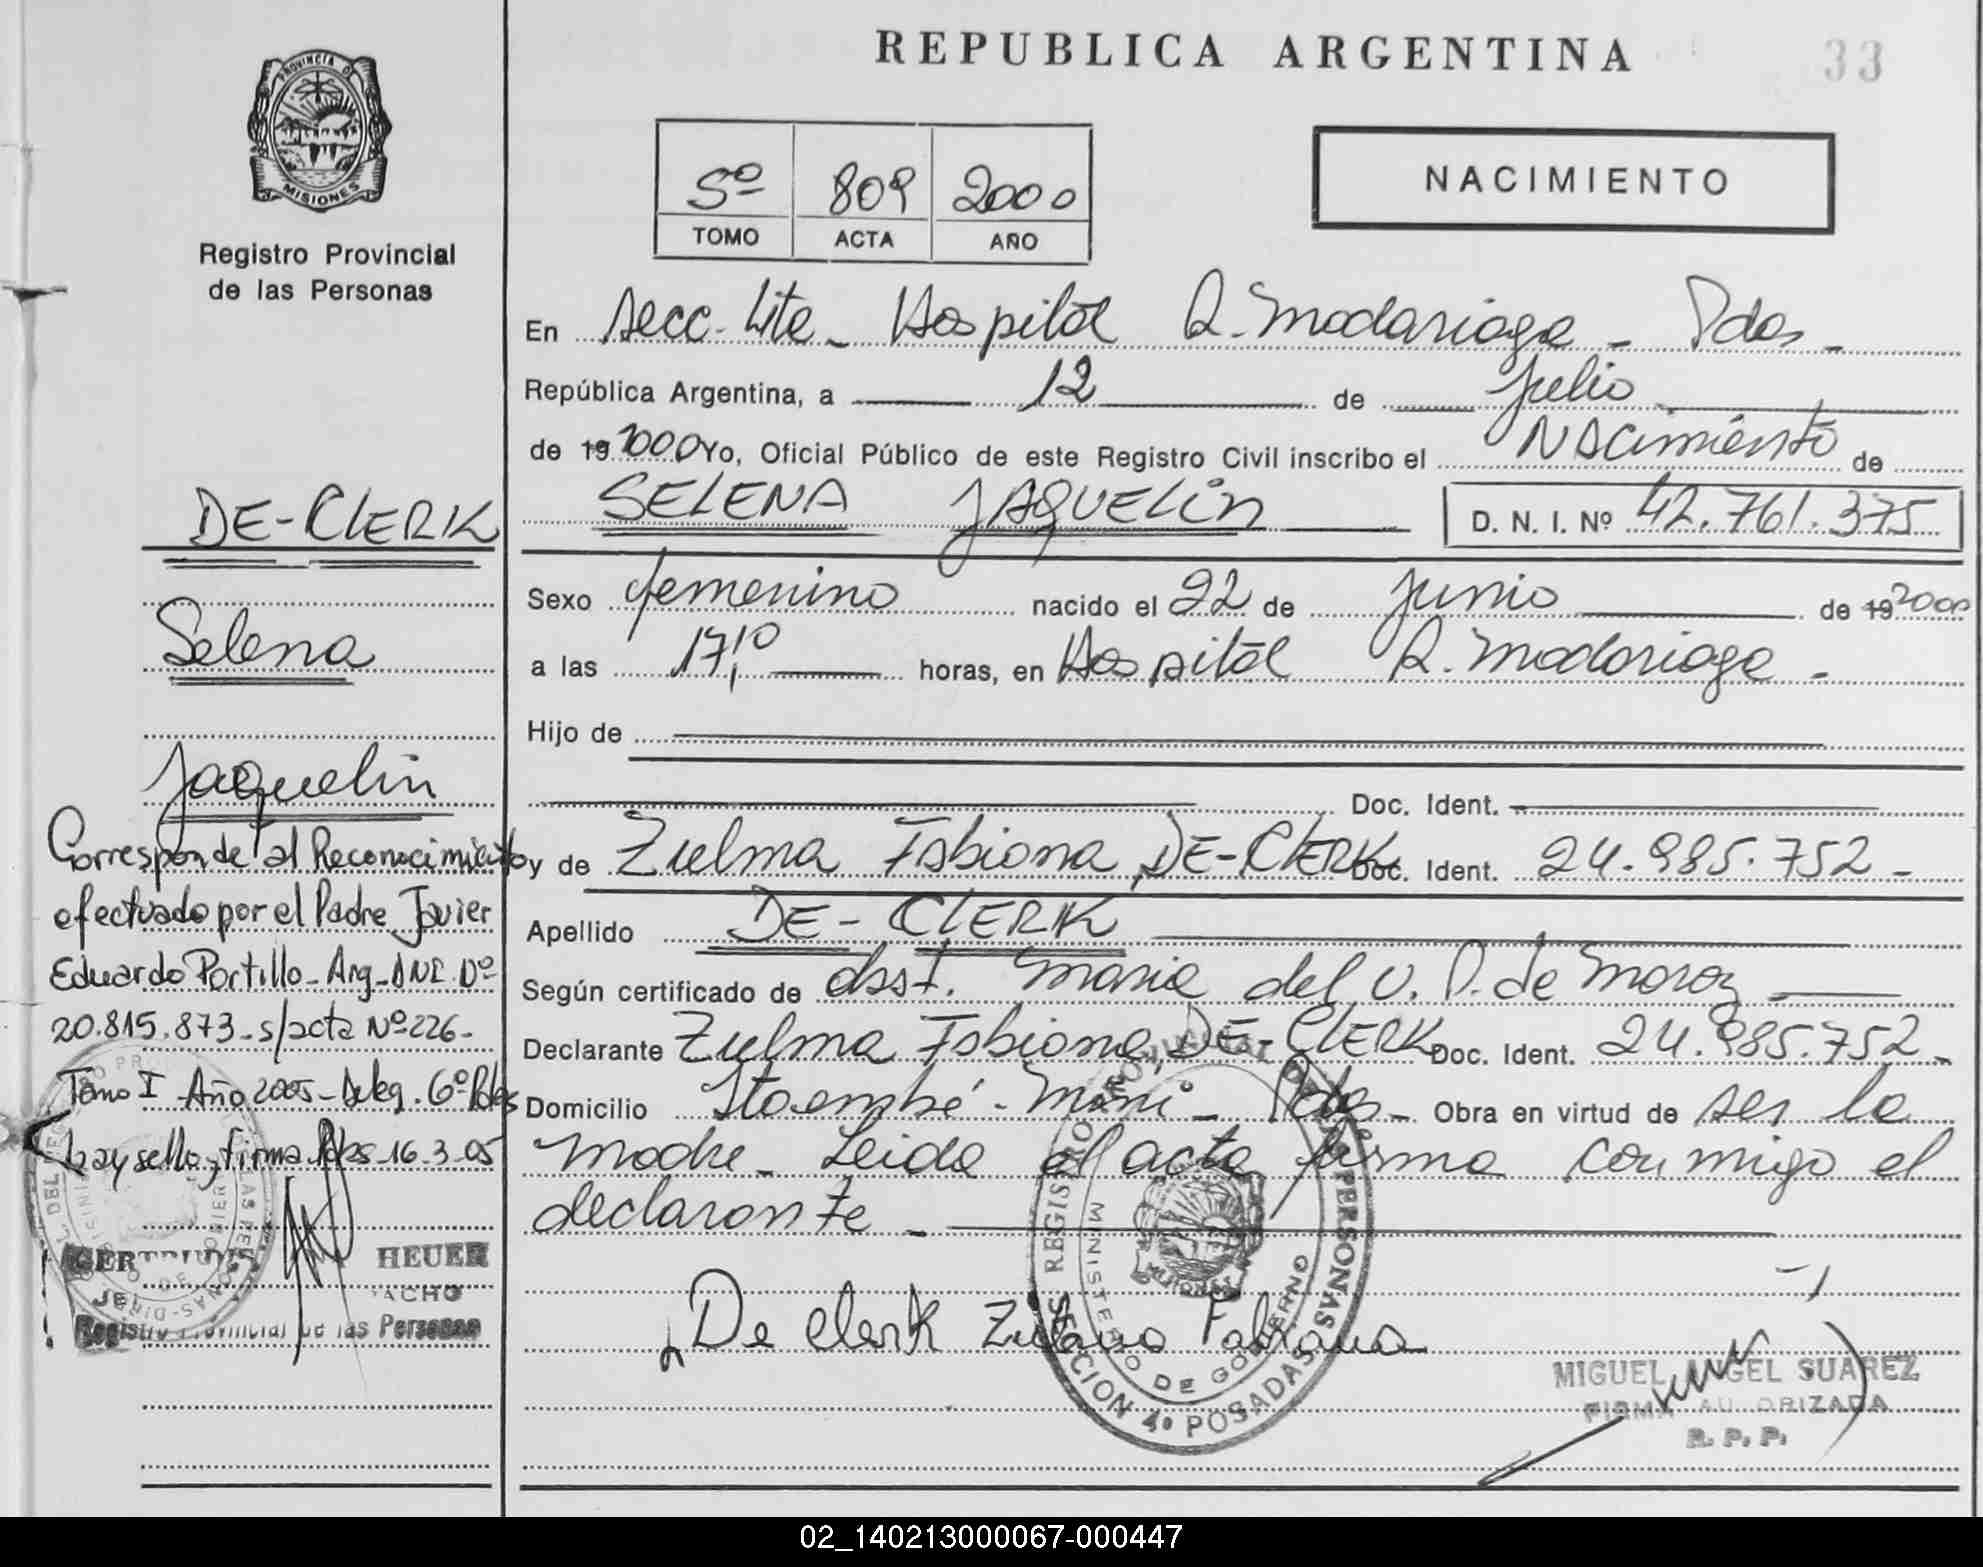 REPUBLICA ARGENTINA
33
PROVINCIA DE
MISIONES
Registro Provincial
de las Personas
5º 809 2000
TOMO ACTA AÑO
NACIMIENTO
En Secc. 4ta - Hospital R. Madariaga - Pdas -
República Argentina, a 12 de Julio
de 19 2000 Yo, Oficial Público de este Registro Civil inscribo el Nacimiento de
SELENA JAQUELin D. N. I. Nº 42.761.375
Sexo femenino nacido el 22 de Junio de 19 2000
a las 17,10 horas, en Hospital R. Madariaga -
Hijo de
Doc. Ident.
y de Zulma Fabiana DE-CLERK Doc. Ident. 24.985.752 -
Apellido DE - CLERK
Según certificado de obst. Maria del v. D. de Moroz
Declarante Zulma Fabiana DE-CLERK Doc. Ident. 24.985.752 -
Domicilio Itaembé - Mini - Pdas - Obra en virtud de ser la
madre - Leida el acta firma conmigo el
declarante -
De clerk Zulma Fabiana
REGISTRO PROVINCIAL DE LAS PERSONAS
MINISTERIO DE GOBIERNO
SECCION 4º POSADAS
MIGUEL ANGEL SUAREZ
FIRMA AUTORIZADA
R. P. P.
DE-CLERK
Selena
Jaquelin
Corresponde al Reconocimiento
efectuado por el Padre Javier
Eduardo Portillo - Arg - DNI Nº
20.815.873 - s/acta Nº 226 -
Tomo I Año 2005 - Deleg. 6º Pdas
hay sello y firma Pdas 16-3-05
GERTRUDIS HEUER
Registro Provincial de las Personas
02_140213000067-000447